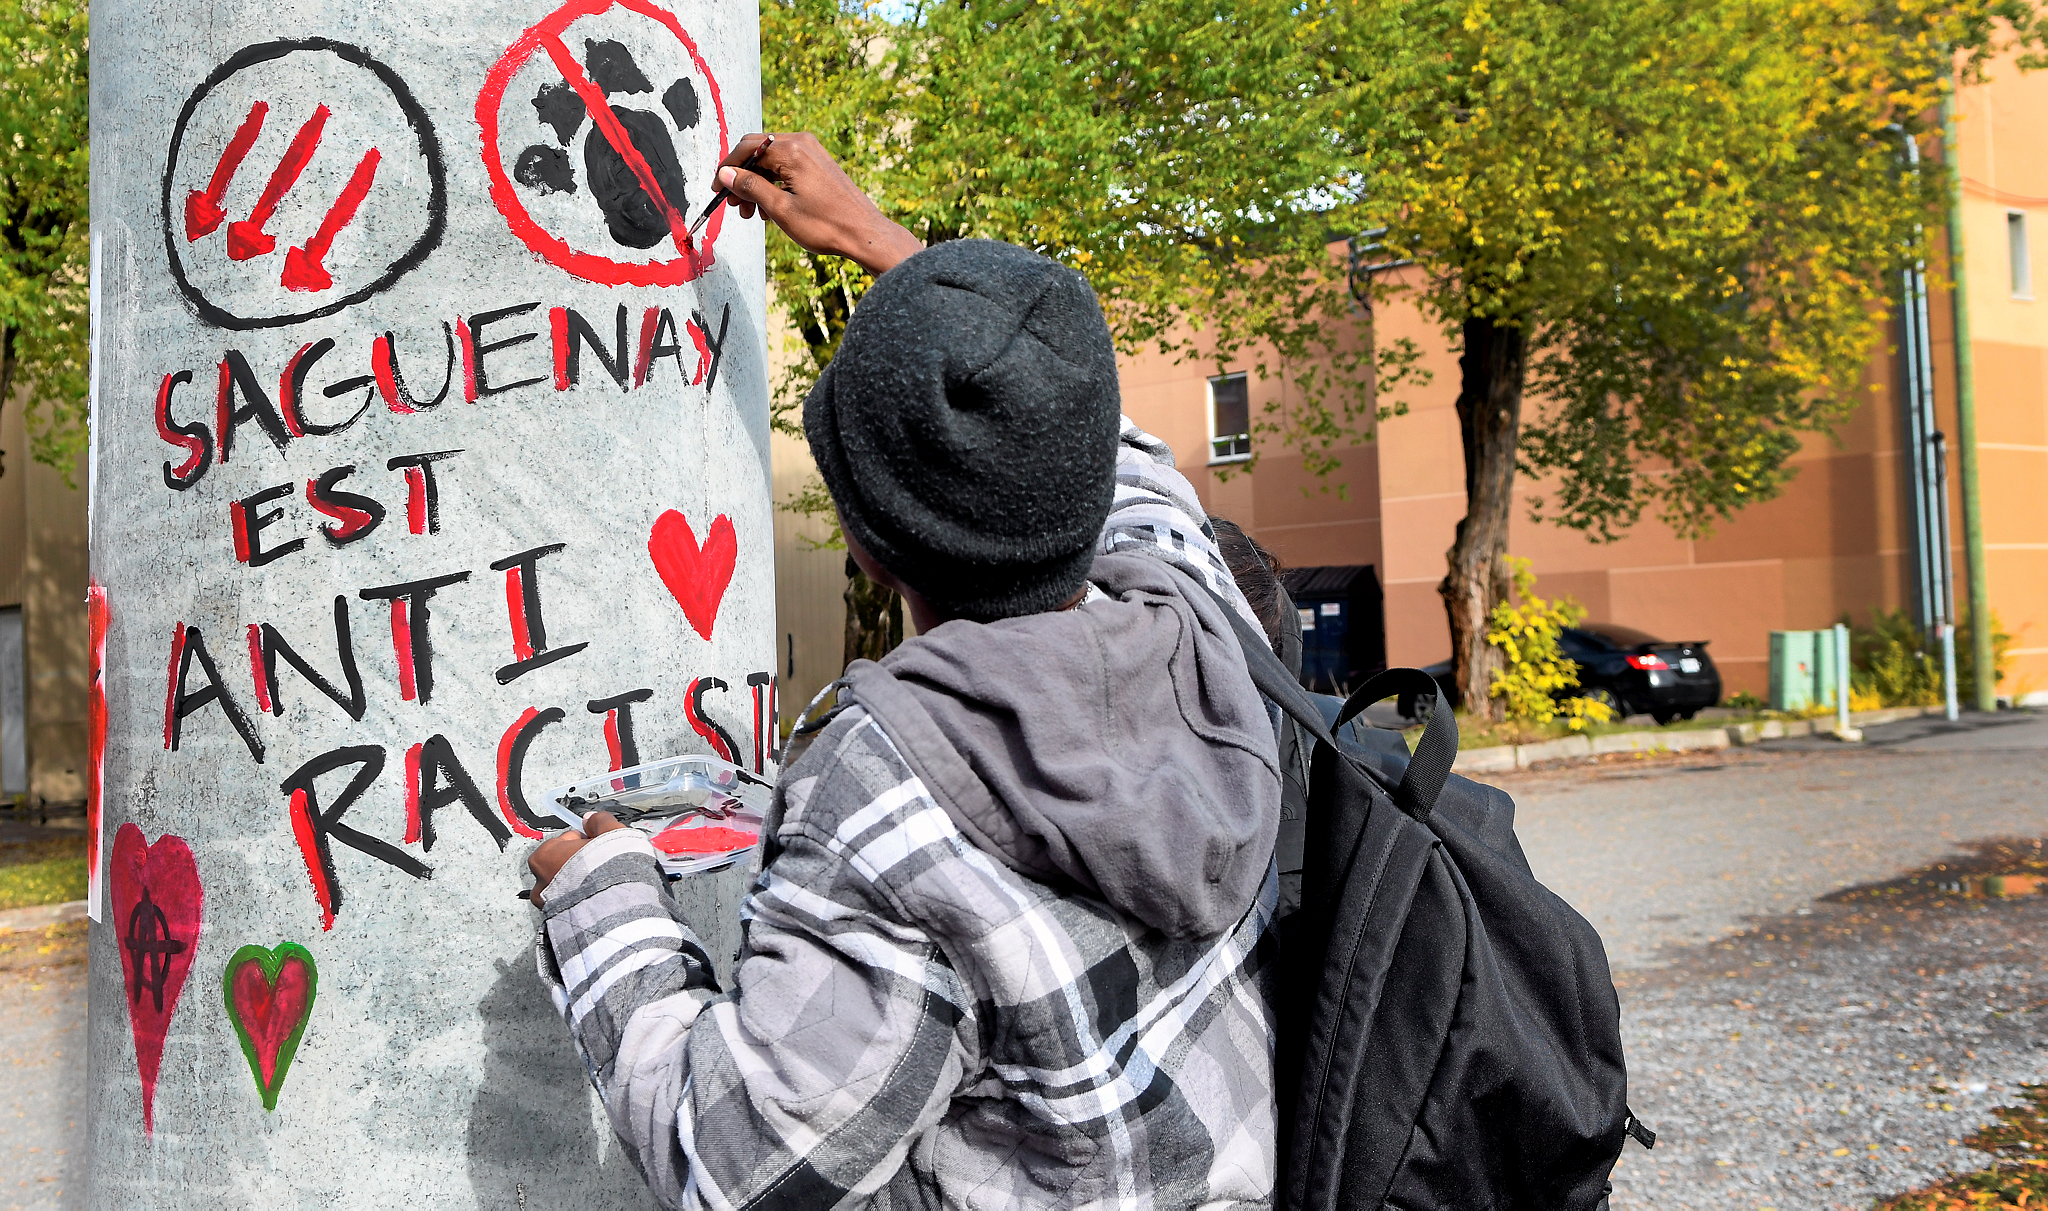 SAGUENAY
EST
ANTI
RACISTE
A